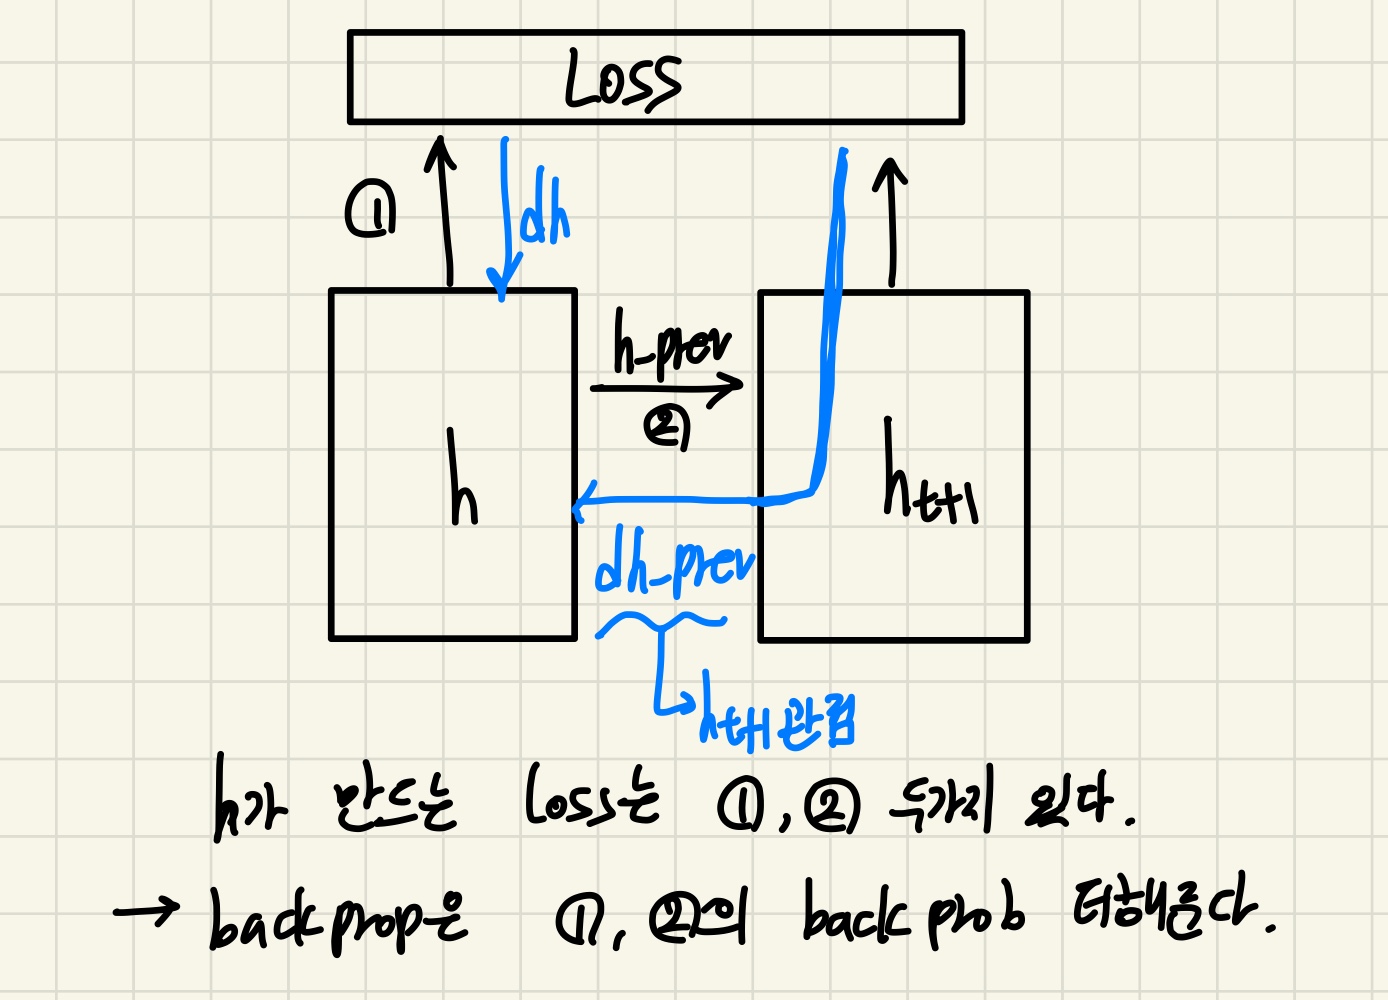 Loss
①
dh
h_prev
②
h
h t+1
dh_prev
h t+1 관점
h가 만드는 Loss는 ①, ② 두가지 있다.
→ backprop은 ①, ②의 backprob 더해준다.